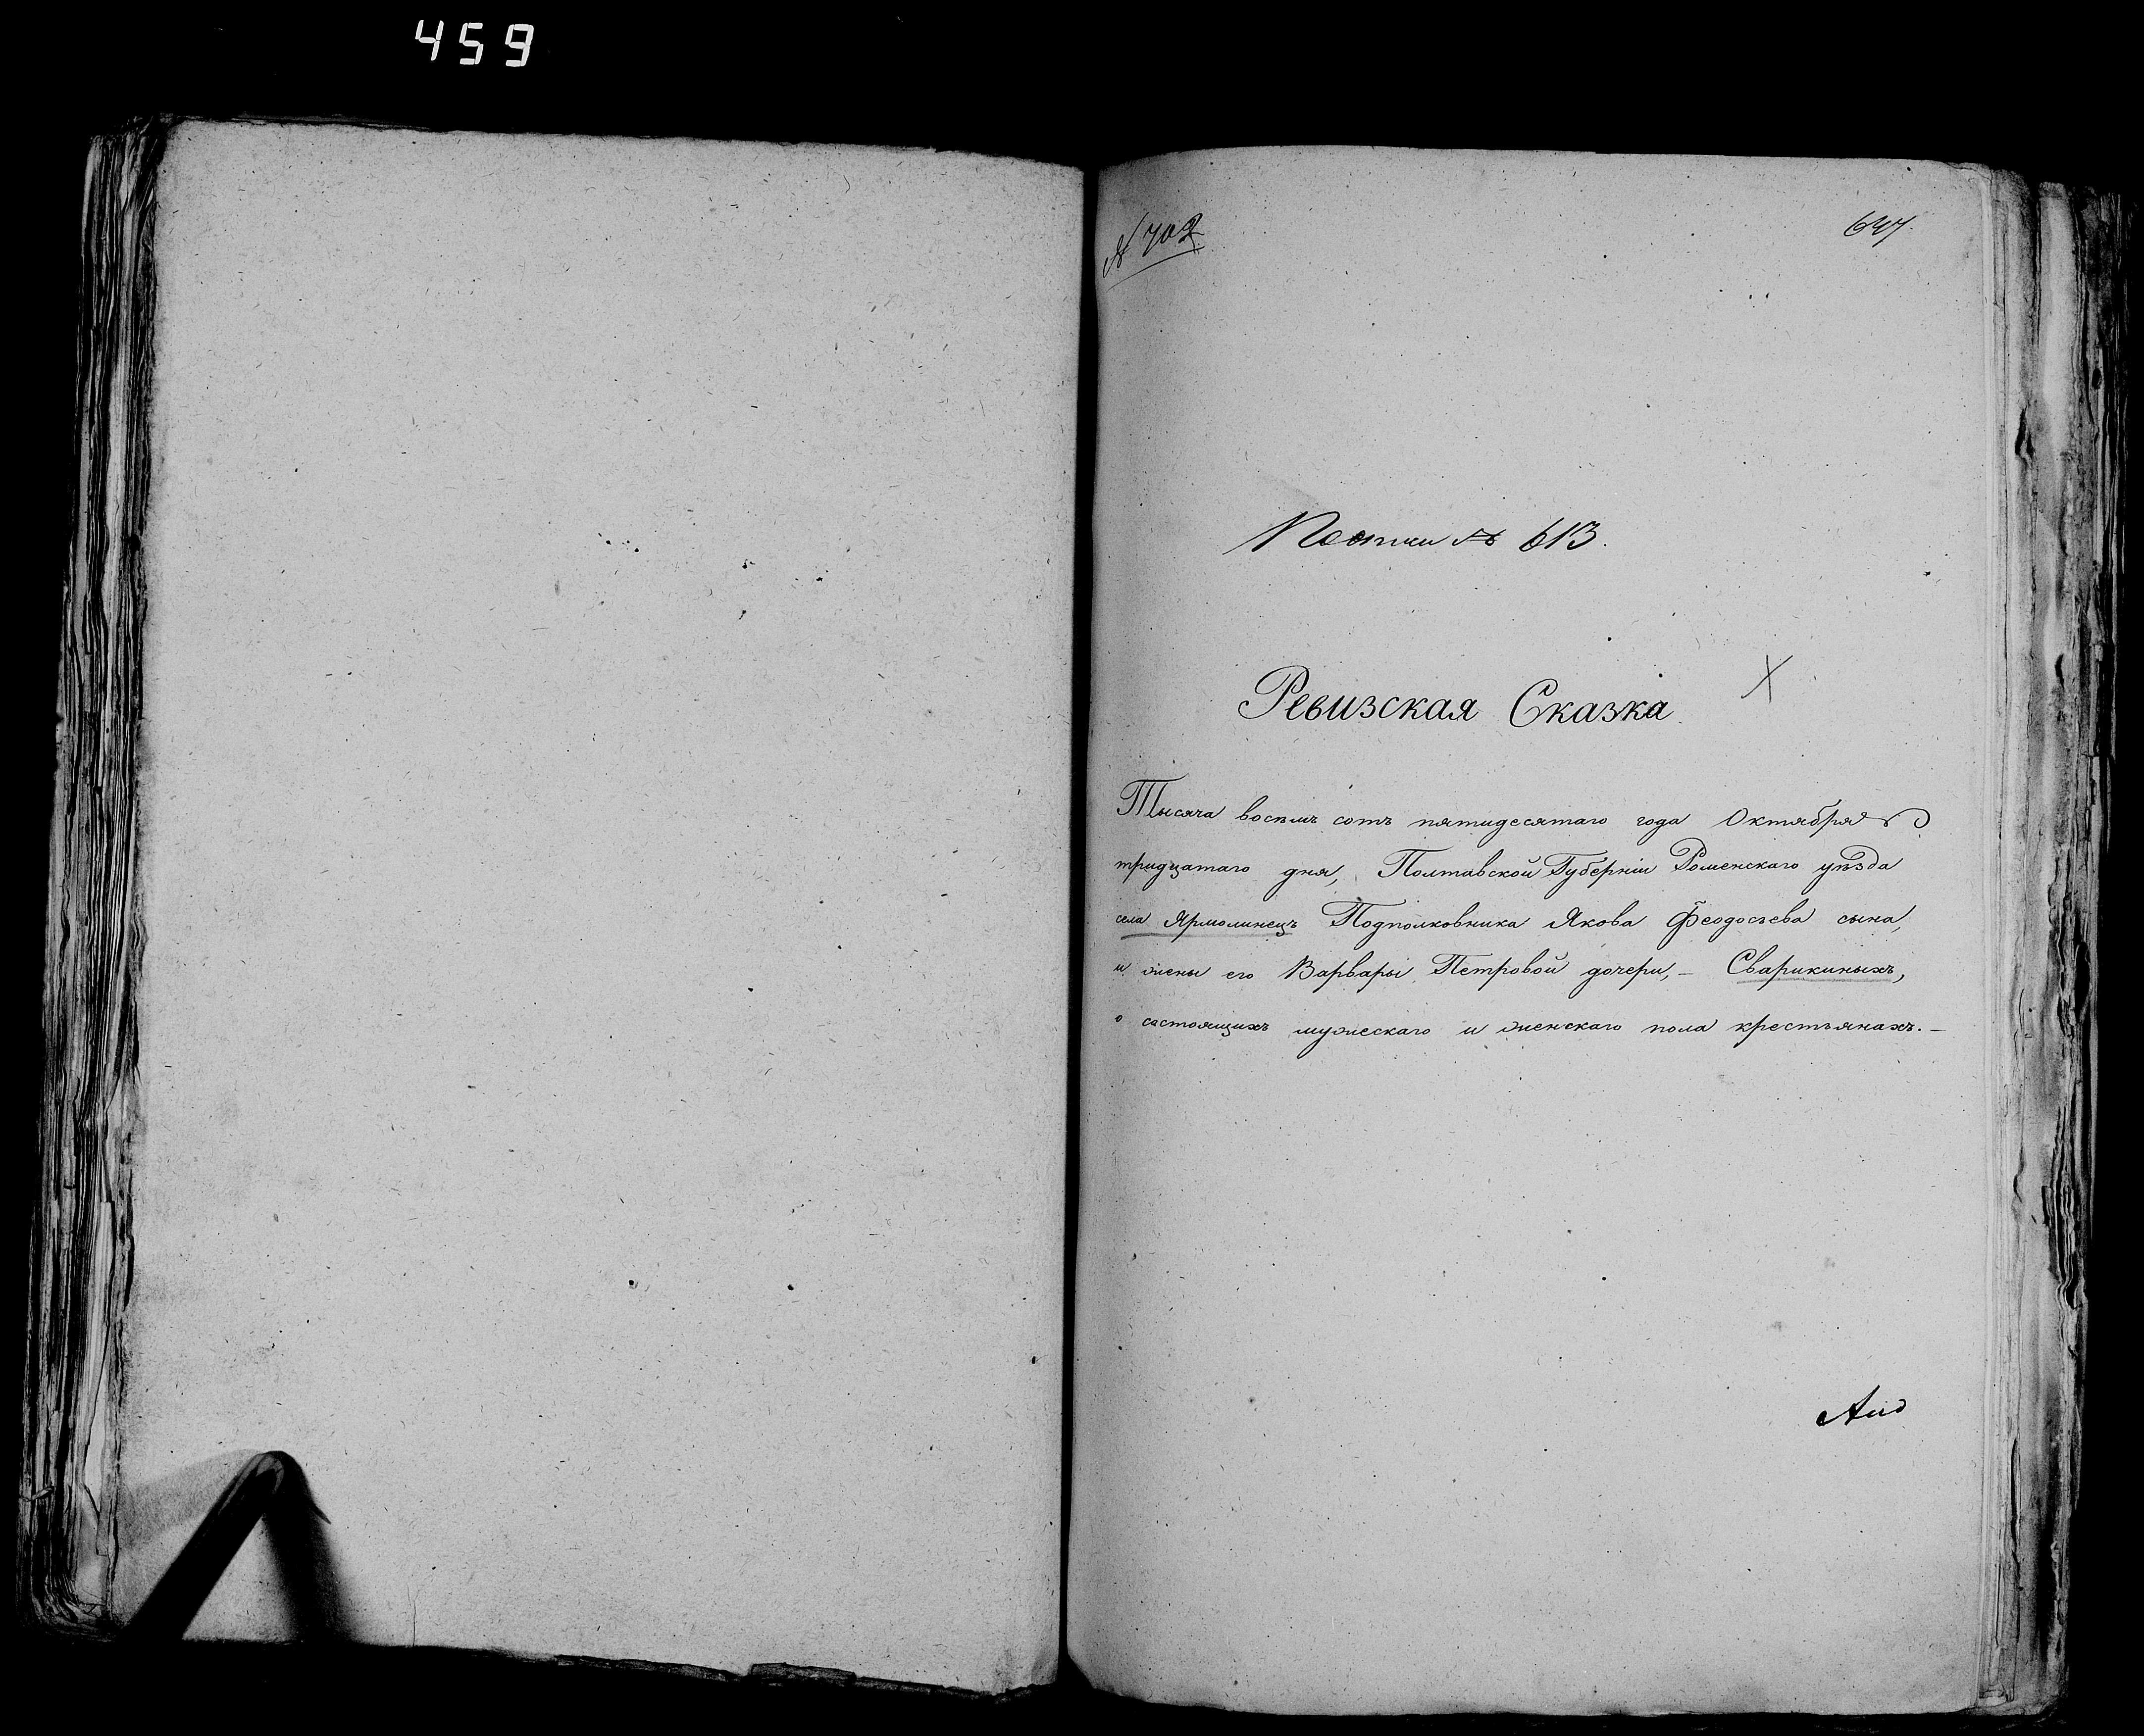 459
№ 702
647.
Почти № 613.
Ревизская Сказка
Тысяча восемъ сотъ пятидесятаго года Октября
тридцатаго дня, Полтавской Губерніи Роменскаго уѣзда
села Ярмолинецъ Подполковника Якова Феодосѣева сына,
и жены его Варвары Петровой дочери, – Сварикиныхъ,
о состоящихъ мужескаго и женскаго пола крестьянахъ. –